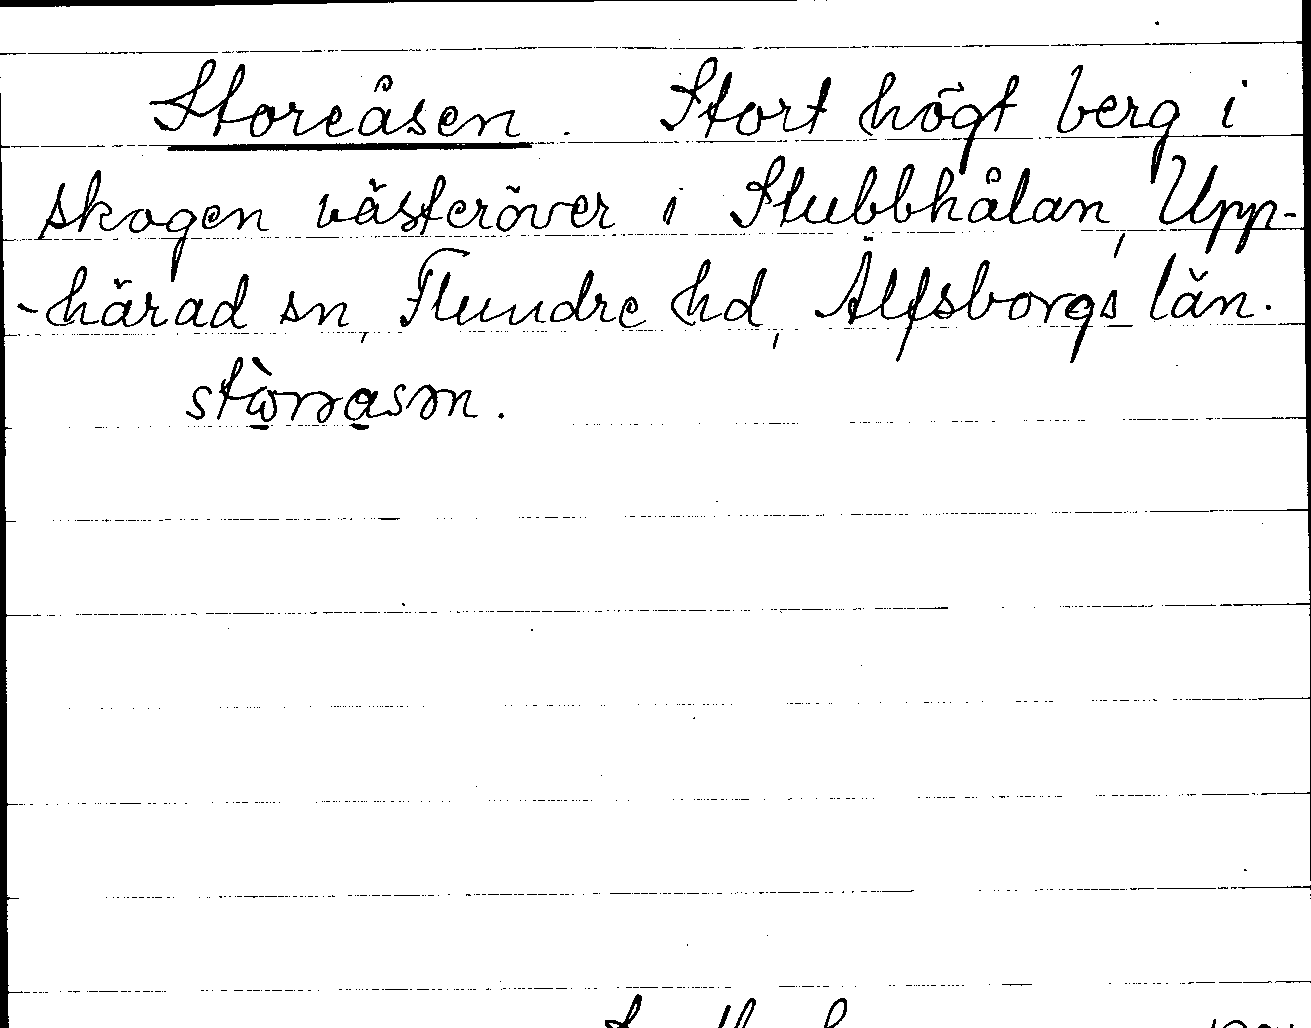 Storeåsen. Stort högt berg i
skogen västeröver i Stubbhålan, Upp-
-härad sn, Flundre hd, Älfsborgs län.